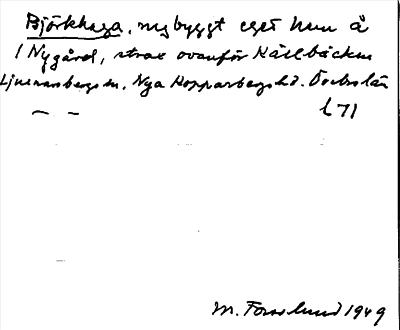 Björkhaga, nybyggt eget hem å
1 Nygård, strax ovanför Källbäcken
Ljusnarsbergs sn. Nya Kopparbergs hd. Örebro län
— — l 71
M. Forslund 1949